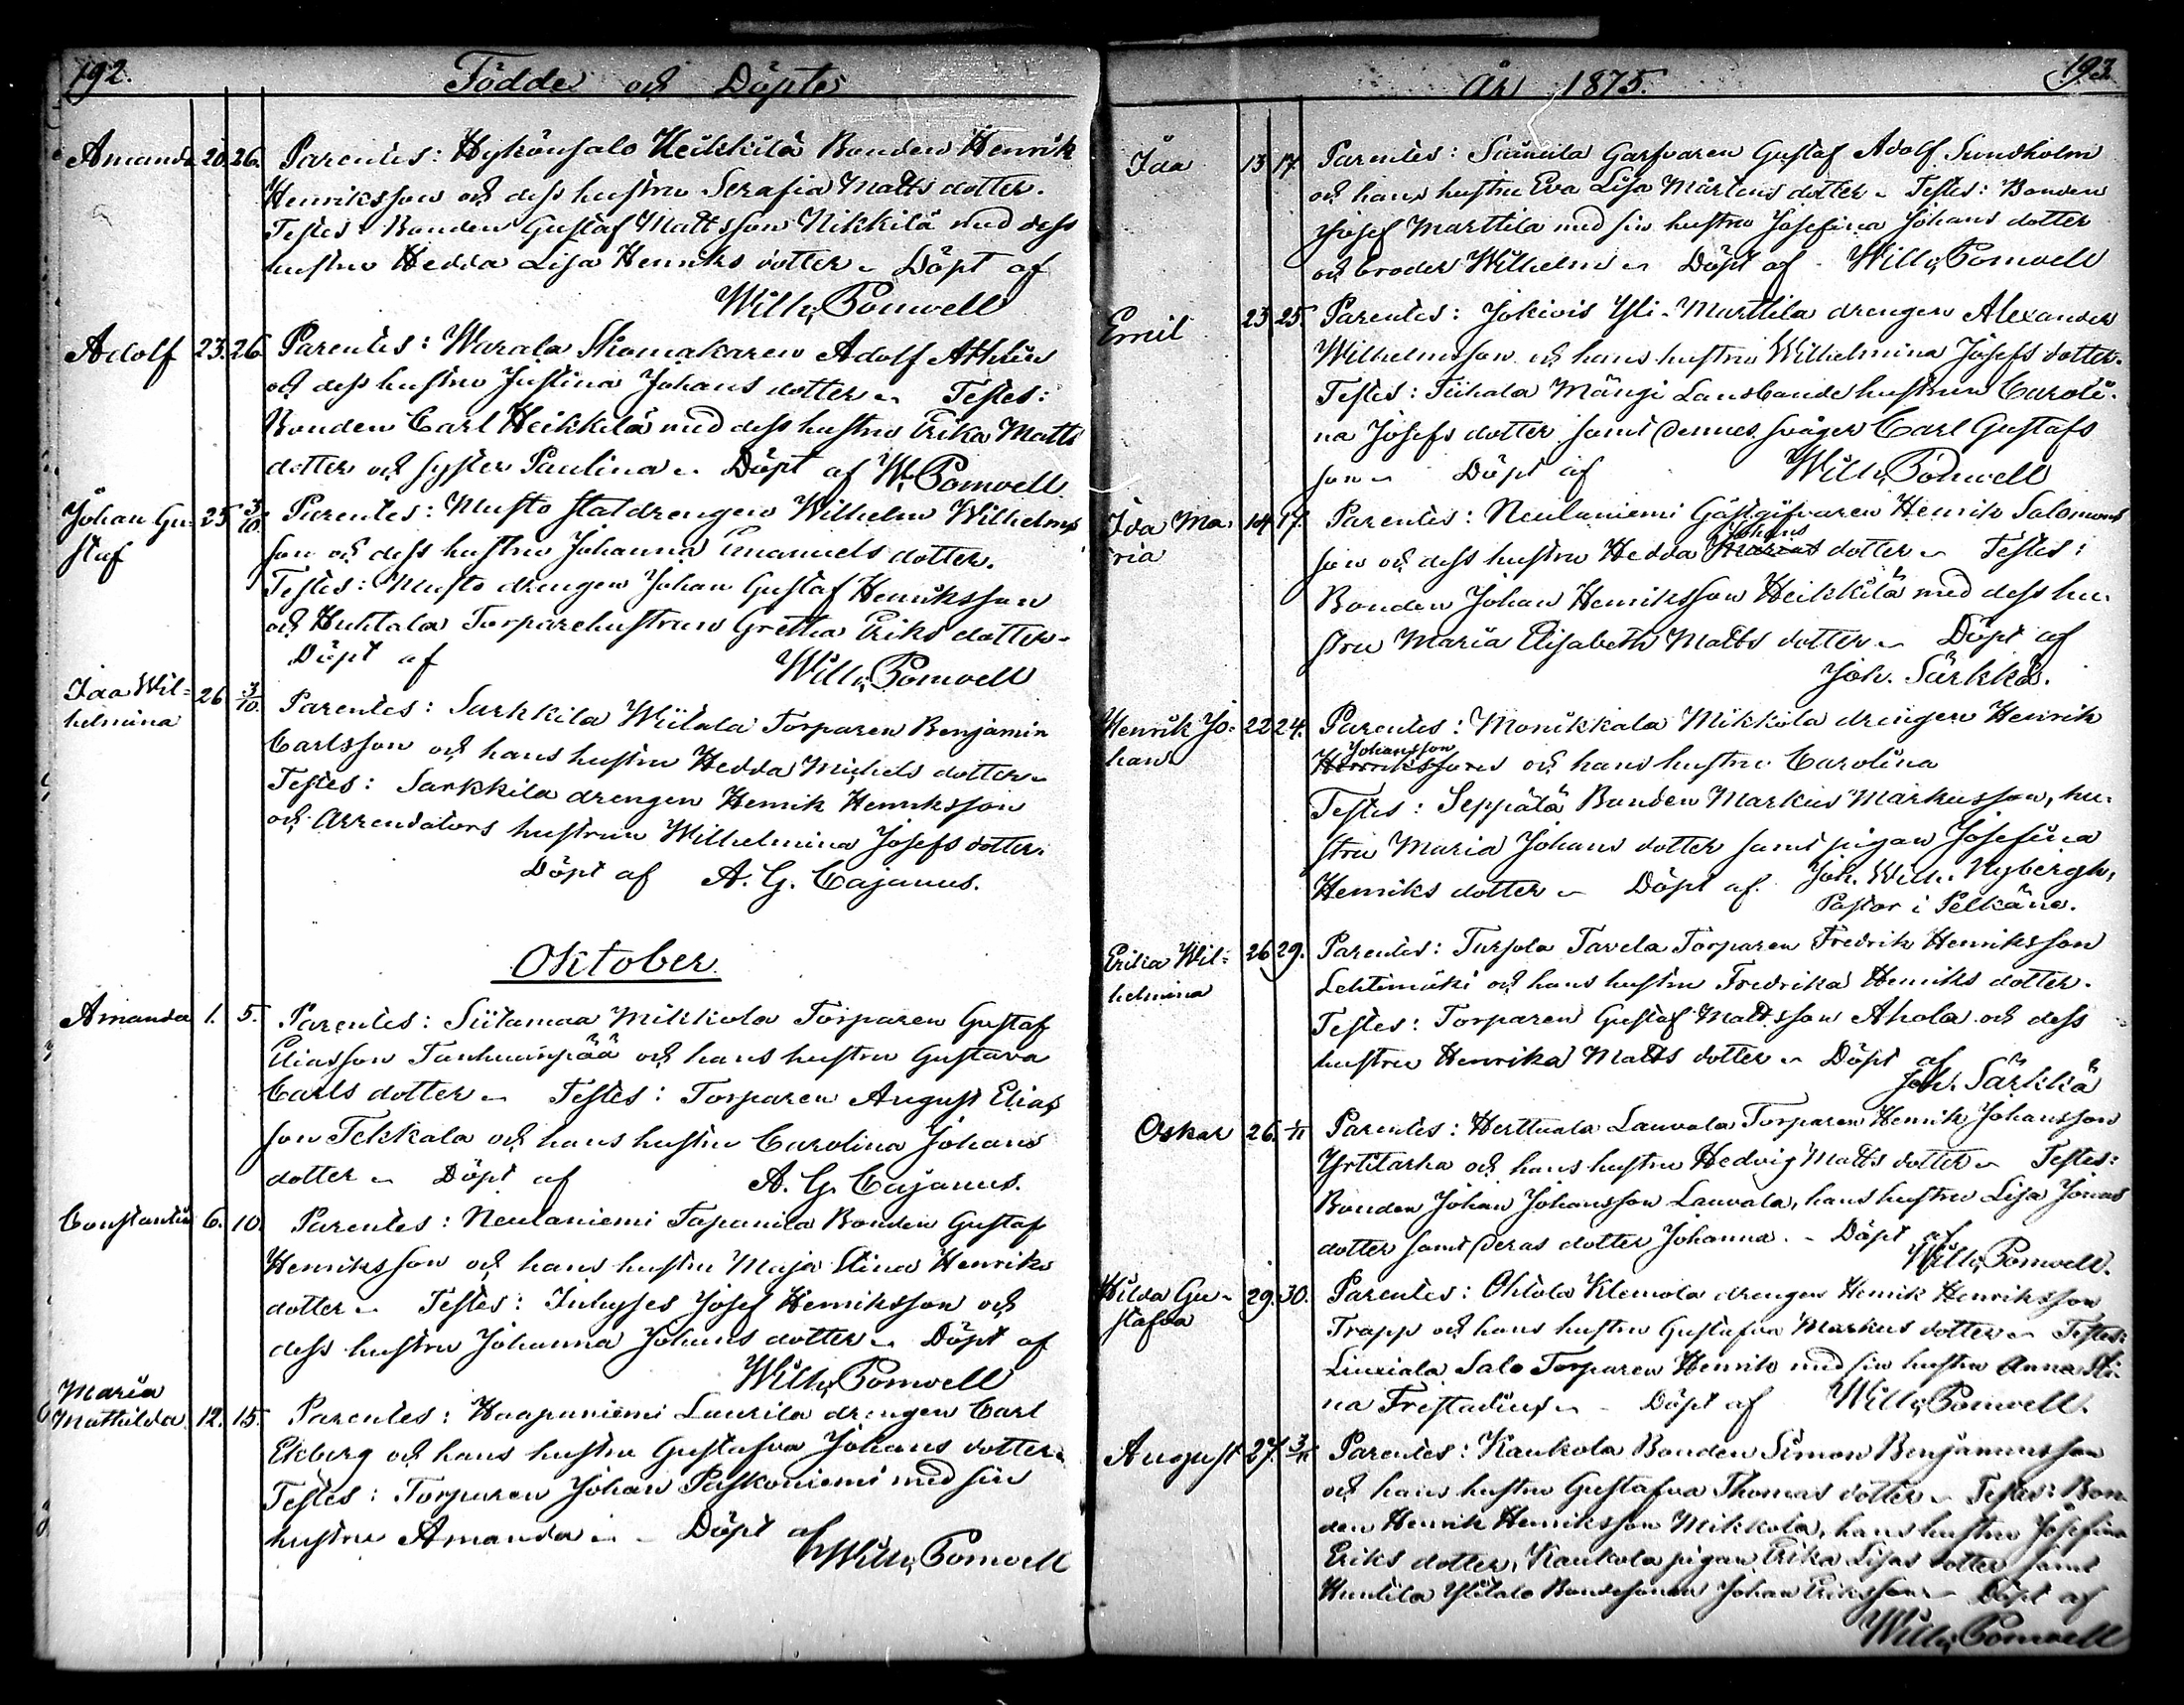 192.
Födde och Döpte
Amanda 20. 26. Parentes: Hykönsalo Heikkilä Bonden Henrik
Henriksson och dess hustru Serafia Matts dotter.
Testes: Bonden Gustaf Mattsson Nikkilä med dess
hustru Hedda Lisa Henriks dotter. Döpt af
Wilh. Pomoell
Adolf 23. 26. Parentes: Warala Skomakaren Adolf Athlin
och dess hustru Justina Johans dotter. Testes:
Bonden Carl Heikkilä med dess hustru Erika Matts
dotter och syster Paulina. Döpt af W. Pomoell
Johan Gu- 25 3/10. Parentes: Musto staldrengen Wilhelm Wilhelms
staf son och dess hustru Johanna Emanuels dotter.
Testes: Musto drengen Johan Gustaf Henriksson
och Huhtala Torparehustrun Gretha Eriks dotter.
Döpt af Wilh. Pomoell
Ida Wil= 26 3/10. Parentes: Sarkkila Wiitala Torparen Benjamin
helmina Carlsson och hans hustru Hedda Michels dotter.
Testes: Sarkkila drengen Henrik Henriksson
och Arrendators hustrun Wilhelmina Josefs dotter.
Döpt af A. G. Cajanus.
Oktober
Amanda 1. 5. Parentes: Siitamaa Mikkola Torparen Gustaf
Eliasson Tanhuanpää och hans hustru Gustava
Carls dotter. Testes: Torparen August Elias
son Tekkala och hans hustru Carolina Johans
dotter. Döpt af A. G. Cajanus.
Constantin 6. 10. Parentes: Neulaniemi Tapanila Bonden Gustaf
Henriksson och hans hustru Maja Stina Henriks
dotter. Testes: Inhyses Josef Henriksson och
dess hustru Johanna Johans dotter. Döpt af
Wilh. Pomoell
Maria
Mathilda 12. 15. Parentes: Haapaniemi Laurila drengen Carl
Ekberg och hans hustru Gustafva Johans dotter.
Testes: Torparen Johan Paskoniemi med sin
hustru Amanda. Döpt af
Wilh. Pomoell
193.
År 1875.
Ida 13 17. Parentes: Garfvaren Gustaf Adolf Sundholm
och hans hustru Eva Lisa Mårtens dotter. Testes: Bonden
Josef Marttila med sin hustru Josefina Johans dotter
och broder Wilhelm. Döpt af Wilh. Pomoell
Emil 23 25. Parentes: Jokiois Yli-Marttila drengen Alexander
Wilhelmsson och hans hustru Wilhelmina Josefs dotter.
Testes: Tiihala Mängi Landbonde hustrun Caroli-
na Josefs dotter samt dennes svåger Carl Gustafs
son. Döpt af Wilh. Pomoell
Ida Ma- 14 17. Parentes: Neulaniemi Gästgifvaren Henrik Salomons
ria son och dess hustru Hedda Johans dotter. Testes:
Bonden Johan Henriksson Heikkilä med dess hu-
stru Maria Elisabeth Matts dotter. Döpt af
Joh. Särkkä.
Henrik Jo- 22 24. Parentes: Monikkala Mikkola drengen Henrik
han Johansson
Henriksson och hans hustru Carolina
Testes: Seppälä Bonden Markus Markusson, hu-
stru Maria Johans dotter samt pigan Josefina
Henriks dotter. Döpt af Joh. Wilh. Nybergh,
Pastor i Pelkäne.
Erika Wil= 26 29. Parentes: Turpola Tavela Torparen Fredrik Henriksson
helmina Lehtimäki och hans hustru Fredrika Henriks dotter.
Testes: Torparen Gustaf Mattsson Ahola och dess
hustru Henrika Matts dotter. Döpt af
Joh. Särkkä
Oskar 26. 1/11 Parentes: Herttuala Lauvala Torparen Henrik Johansson
Yrtitarha och hans hustru Hedvig Matts dotter. Testes:
Bonden Johan Johansson Lauvala, hans hustru Lisa Jonas
dotter samt deras dotter Johanna. Döpt af
Wilh. Pomoell.
Hilda Gu- 29. 30. Parentes: Ohtola Klemola drengen Henrik Henriksson
stafva Trapp och hans hustru Gustafva Markus dotter. Testes:
Liuxiala Salo Torparen Henrik med sin hustru Anna Sti-
na Döpt af Wilh. Pomoell.
August 27. 3/11 Parentes: Kaukola Bonden Simon Benjaminsson
och hans hustru Gustafva Thomas dotter. Testes: Bon-
den Henrik Henriksson Mikkola, hans hustru Josefina
Eriks dotter, Kaukola pigan Erika Lisas dotter samt
Huntila Ylitalo Bondesonen Johan Eriksson. Döpt af
Wilh. Pomoell